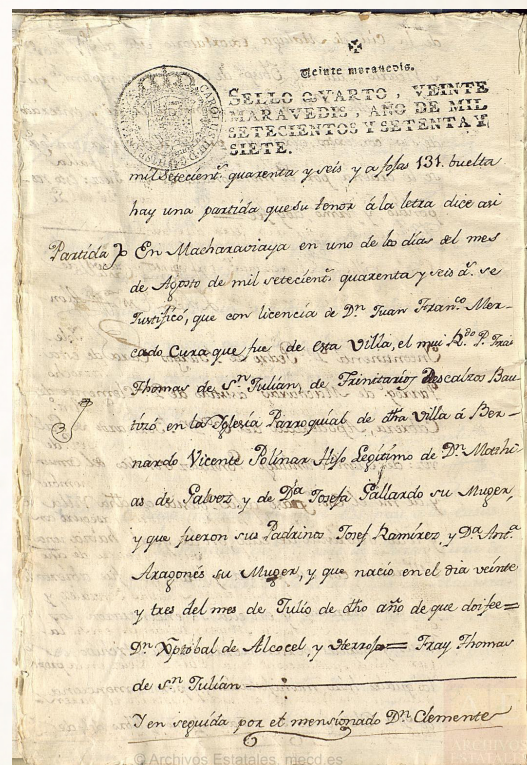 Veinte maravedis.
SELLO QVARTO, VEINTE
MARAVEDIS, AÑO DE MIL
SETECIENTOS Y SETENTA Y
SIETE.
mil Setecient.s quarenta y seis y a fojas 131. buelta
hay una partida que su tenor á la letra dice asi
Partida En Macharaviaya en uno de los dias del mes
de Agosto de mil setecient.s quarenta y seis a.s se
Justificó, que con licencia de D.n Juan Fran.co Mer-
cado Cura que fue de esta Villa, el mui R.do P. Frai
Thomas de S.n Julian, de Trinitarios Descalzos Bau-
tizó, en la Yglesia Parroquial de dha Villa á Ber-
nardo Vicente Polinar Hijo Legitimo de D.n Mathi-
as de Galvez y de D.a Josefa Gallardo su Muger,
y que fueron sus Padrinos Josef Ramirez, y D.a Ant.a
Aragonés su Muger, y que nacio en el dia veinte
y tres del mes de Julio de dho año de que doi fee=
D.n Xptobal de Alcocel, y Herrosa= Fray Thomas
de S.n Julian
Y en seguida por el mensionado D.n Clemente
© Archivos Estatales, mecd.es
ARCHIVOS
ESTATALES